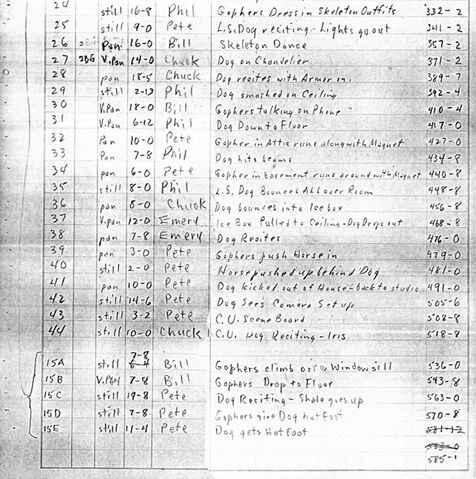 24 still 16-8 Phil Gophers Dress in Skeleton Outfits 332-2
25 still 9-0 Pete L.S. Dog reciting - Lights go out 341-2
26 Pan 16-0 Bill Skeleton Dance 357-2
27 2BG V.Pan 14-0 Chuck Dog on Chandelier 371-2
28 pan 18-5 Chuck Dog recites with Armor in. 389-7
29 still 2-13 Phil Dog smashed on Ceiling 392-4
30 V.Pan 18-0 Bill Gophers talking on Phone 410-4
31 V.Pan 6-12 Phil Dog Down to Floor 417-0
32 Pan 10-0 Pete Gopher in Attic runs along with Magnet 427-0
33 Pan 7-8 Phil Dog hits beams 434-8
34 pan 6-0 Pete Gopher in basement runs around with Magnet 440-8
35 still 8-0 Phil L.S. Dog Bounces All over Room 448-8
36 pan 8-0 Chuck Dog bounces into Ice box 456-8
37 V.pan 12-0 Emery Ice Box Pulled to Ceiling - Dog Drops out 468-8
38 pan 7-8 Emery Dog Recites 476-0
39 pan 3-0 Pete Gophers push Horse in 479-0
40 still 2-0 Pete Horse pushed up behind Dog 481-0
41 pan 10-0 Pete Dog kicked out of House - back to studio 491-0
42 still 14-6 Pete Dog Sees Camera Set up 505-6
43 still 3-2 Pete C.U. Scene Board 508-8
44 still 10-0 Chuck C.U. Dog Reciting - Iris 518-8
7-8
15A still 6-4 Bill Gophers climb on a Window sill 536-0
15B V.Pan 7-8 Bill Gophers Drop to Floor 543-8
15C still 19-8 Pete Dog Reciting - Shade goes up 563-0
15D still 7-8 Pete Gophers give Dog hot Foot 570-8
15E still 11-4 Pete Dog gets Hot Foot 581-12
583-0
585-1